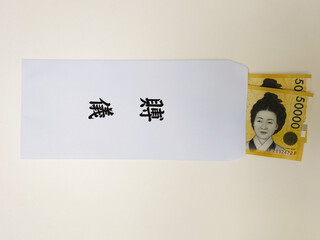 賻儀
50
50000